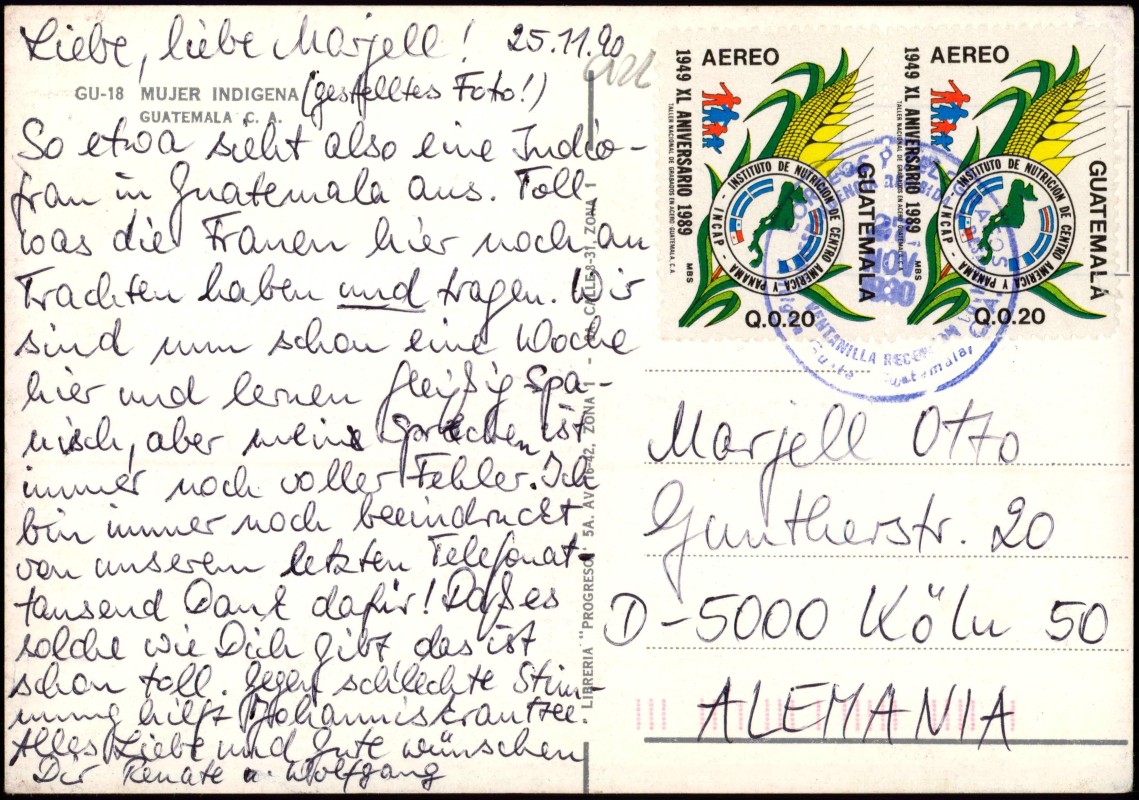 Liebe, liebe Marjell! 25.11.90
GU-18 MUJER INDIGENA (gestelltes Foto!)
GUATEMALA C. A.
So etwa sieht also eine Indio-
frau in Guatemala aus. Toll
was die Frauen hier noch an
Trachten haben und tragen. Wir
sind nun schon eine Woche
hier und lernen fleißig Spa-
nisch, aber meine Sprachen ist
immer noch voller Fehler. Ich
bin immer noch beeindruckt
von unserem letzten Telefonat-
tausend Dank dafür! Daß es
solche wie Dich gibt das ist
schon toll. Gegen schlechte Stim-
mung hilft Johanniskrauttee.
Alles Liebe und Gute wünschen
Dir Renate u. Wolfgang
LIBRERIA "PROGRESO" 5A. AV. 6-42, ZONA 1 - CALLE 8-31, ZONA 1
AEREO
1949 XL ANIVERSARIO 1989
TALLER NACIONAL DE GRABADOS EN ACERO GUATEMALA, C.A.
MBS
INSTITUTO DE NUTRICION DE CENTRO AMERICA Y PANAMA - INCAP -
GUATEMALA
Q.0.20
AEREO
1949 XL ANIVERSARIO 1989
TALLER NACIONAL DE GRABADOS EN ACERO GUATEMALA, C.A.
MBS
INSTITUTO DE NUTRICION DE CENTRO AMERICA Y PANAMA - INCAP -
GUATEMALA
Q.0.20
NOV
VENTANILLA
Guatemala,
Marjell Otto
Guntherstr. 20
D-5000 Köln 50
ALEMANIA